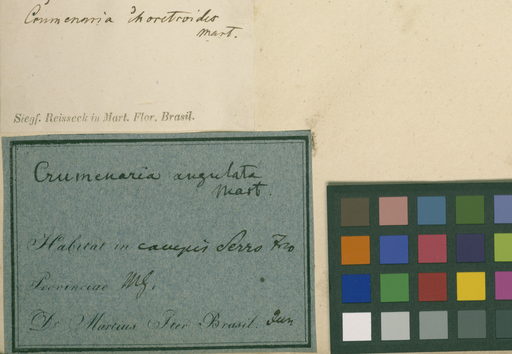 Crumenaria choretroides
Mart.
Siegf. Reisseck in Mart. Flor. Brasil.
Crumenaria angulata
Mart.
Habitat in campis Serro Frio
Provinciae MG.
Dr Martius Iter Brasil. Jun